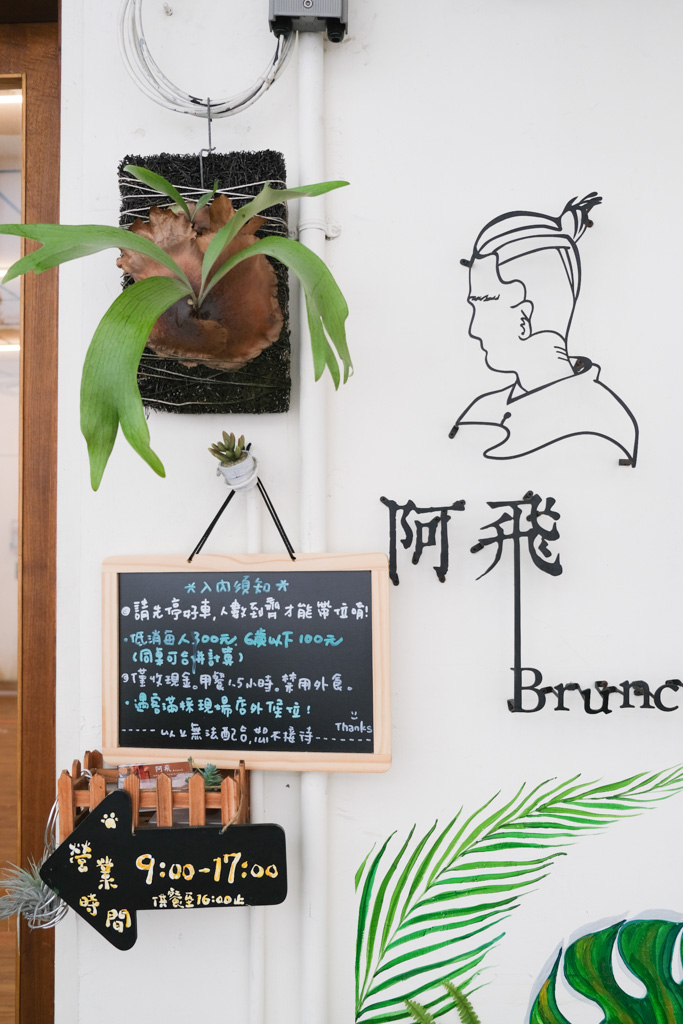 阿飛
Brunc
*入內須知*
●請先停好車,人數到齊才能帶位唷!
•低消每人300元,6歲以下100元
(同桌可合併計算)
●僅收現金。用餐1.5小時。禁用外食。
•遇客滿採現場店外候位!
Thanks
以上無法配合,恕不接待
阿飛
營業時間
9:00-17:00
供餐至16:00止